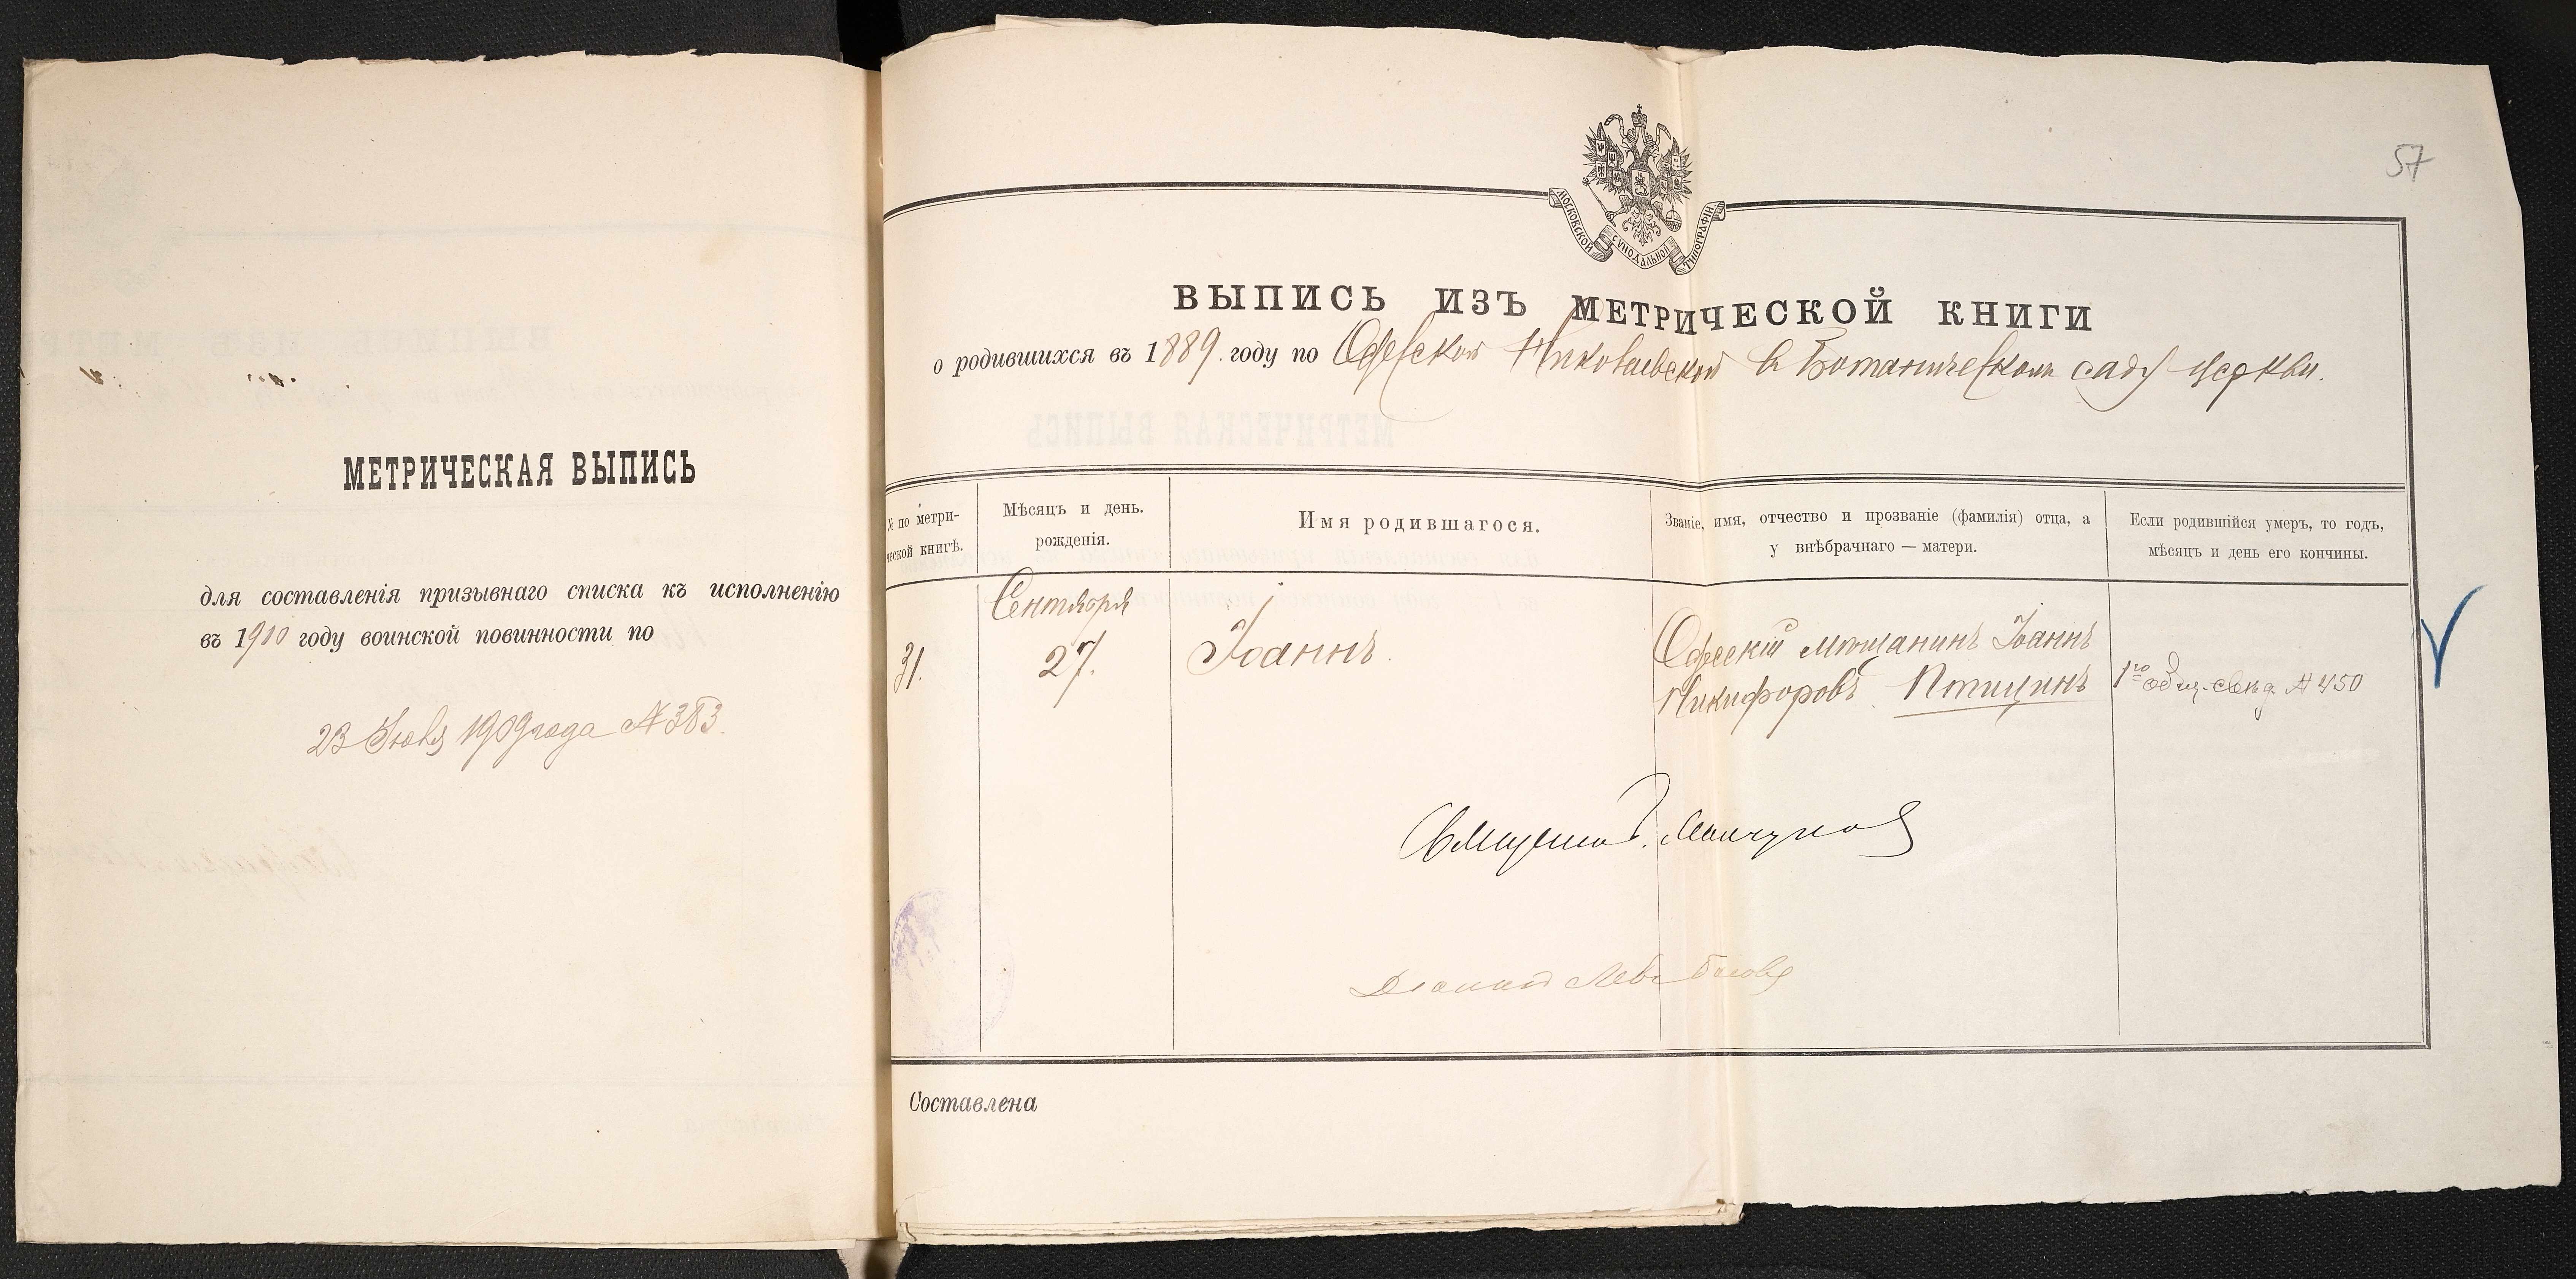 МЕТРИЧЕСКАЯ ВЫПИСЬ
для составленія призывнаго списка къ исполненію
въ 1910 году воинской повинности по
23 Іюля 1909 года № 383.
57
МОСКОВСКОЙ СѴНОДАЛЬНОЙ ТИПОГРАФІИ
ВЫПИСЬ ИЗЪ МЕТРИЧЕСКОЙ КНИГИ
о родившихся въ 1889. году по Одесской Николаевской въ Ботаническомъ саду церкви.
№ по метри-
ческой книгѣ.
Мѣсяцъ и день.
рожденія.
Имя родившагося.
Званіе, имя, отчество и прозваніе (фамилія) отца, а
у внѣбрачнаго — матери.
Если родившійся умеръ, то годъ,
мѣсяцъ и день его кончины.
31.
Сентября
27.
Іоаннъ.
Одесскій мѣщанинъ Іоаннъ
Никифоровъ Птицинъ
1го общ. свид. № 450
Священ.
Составлена